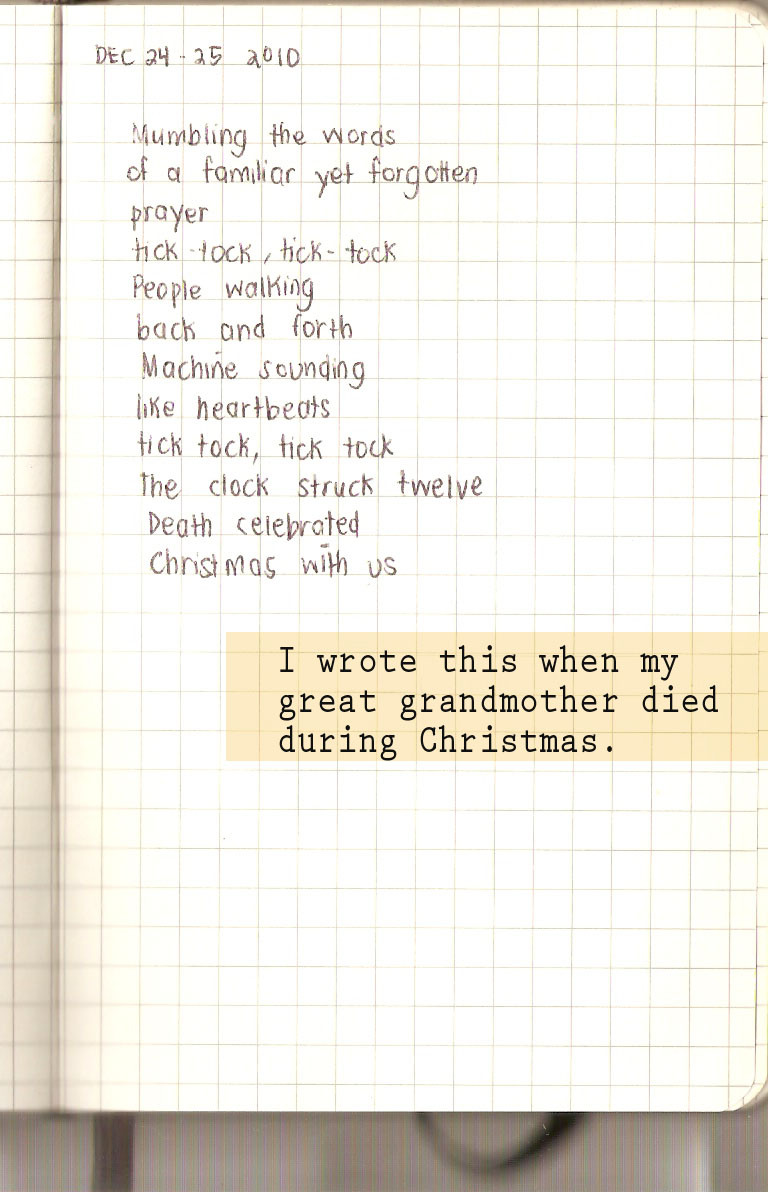 DEC 24 - 25 2010
Mumbling the words
of a familiar yet forgotten
prayer
tick-tock, tick-tock
People walking
back and forth
Machine sounding
like heartbeats
tick tock, tick tock
The clock struck twelve
Death celebrated
Christmas with us
I wrote this when my
great grandmother died
during Christmas.